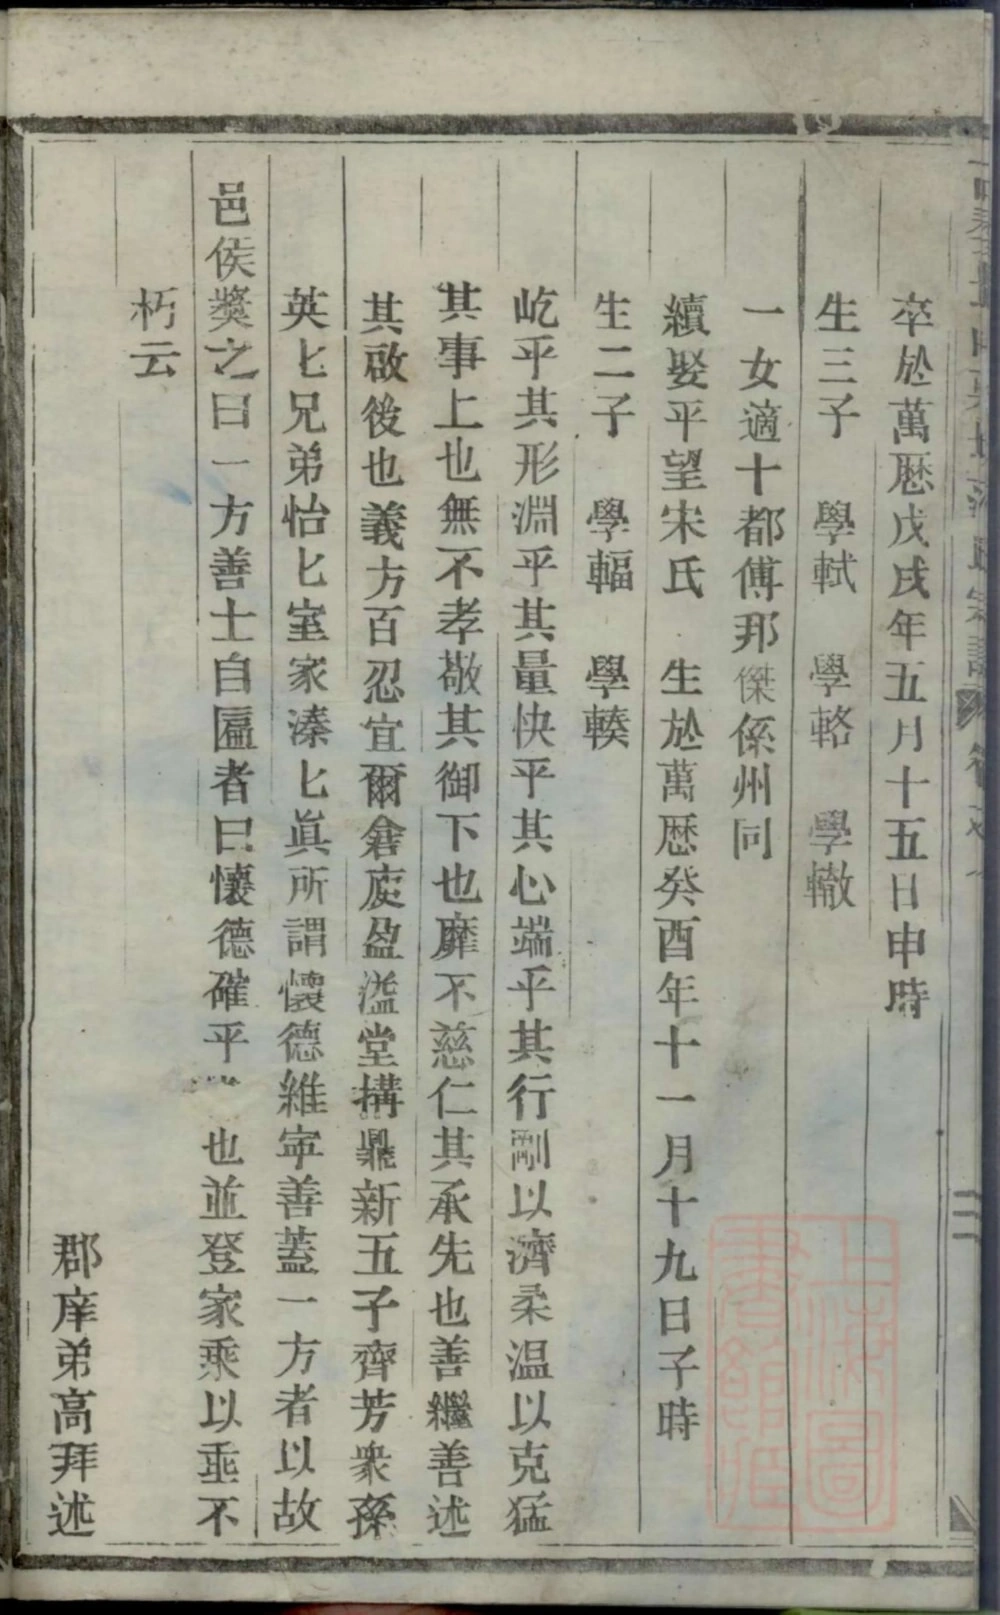 卒於萬厯戊戌年五月十五日申時
生三子　學軾　學輅　學轍
一女適十都傅那傑係州同
續娶平望宋氏　生於萬厯癸酉年十一月十九日子時
生二子　學輻　學輳
屹乎其形淵乎其量快乎其心端乎其行剛以濟柔温以克猛
其事上也無不孝敬其御下也靡不慈仁其承先也善繼善述
其啟後也義方百忍宜爾倉庾盈溢堂搆鼎新五子齊芳衆孫
英匕兄弟怡匕室家溱匕眞所謂懷德維寕善蓋一方者以故
邑侯獎之曰一方善士自匾者曰懷德確乎　也並登家乘以垂不
朽云
郡庠弟高拜述
上海圖書館藏